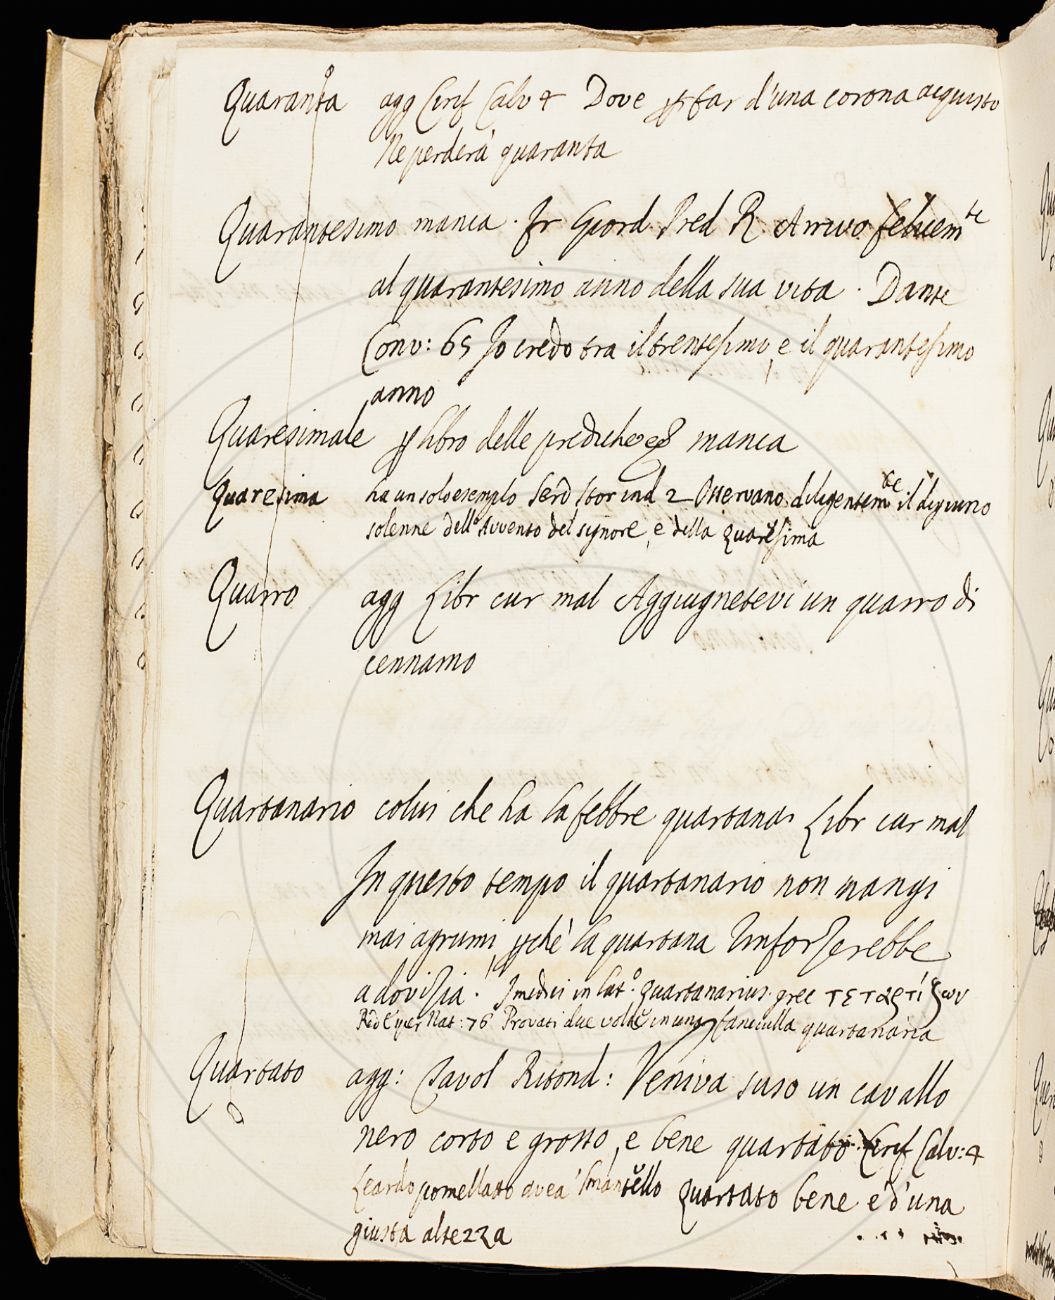 Quaranta agg Cirif Calv 4 Dove per far d'una corona acquisto
Ne perderà quaranta
Quarantesimo manca. Fr Giord. Pred R. Arrivo felicem.te
al quarantesimo anno della sua vita. Dante
Conv: 65 Io credo tra il trentesimo, e il quarantesimo
anno
Quaresimale per libro delle prediche manca
Quaresima ha un solo esempio Serd Stor ind 2 Osservano diligentem.te il digiuno
solenne dell'Avvento del signore, e della quaresima
Quarro agg Libr cur mal Aggiugnetevi un quarro di
cennamo
Quartanario colui che ha la febbre quartana. Libr cur mal
In questo tempo il quartanario non mangi
mai agrumi, perchè la quartana rinforzerebbe
a dovizia. I medici in lat.o quartanarius. grec τεταρτίζων
Red esper Nat: 76 Provati due volte in una fanciulla quartanaria
Quartato agg: Tavol Ritond: Veniva suso un cavallo
nero corto e grosso, e bene quartato Cirif Calv: 4
Leardo pomellato avea 'l mantello quartato bene e d'una
giusta altezza